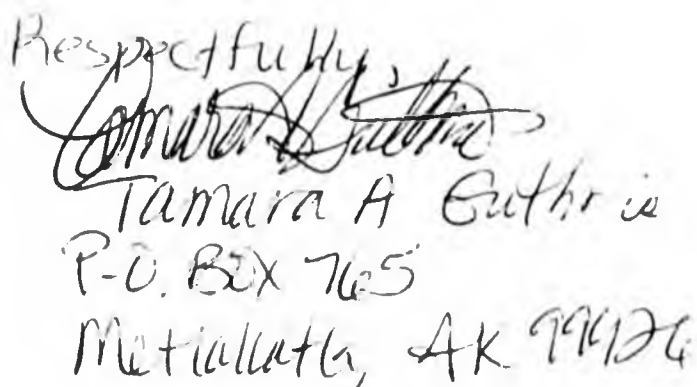 Respectfully,
Tamara A Guthrie
Tamara A Guthrie
P.O. BOX 765
Metlakatla, AK 99926